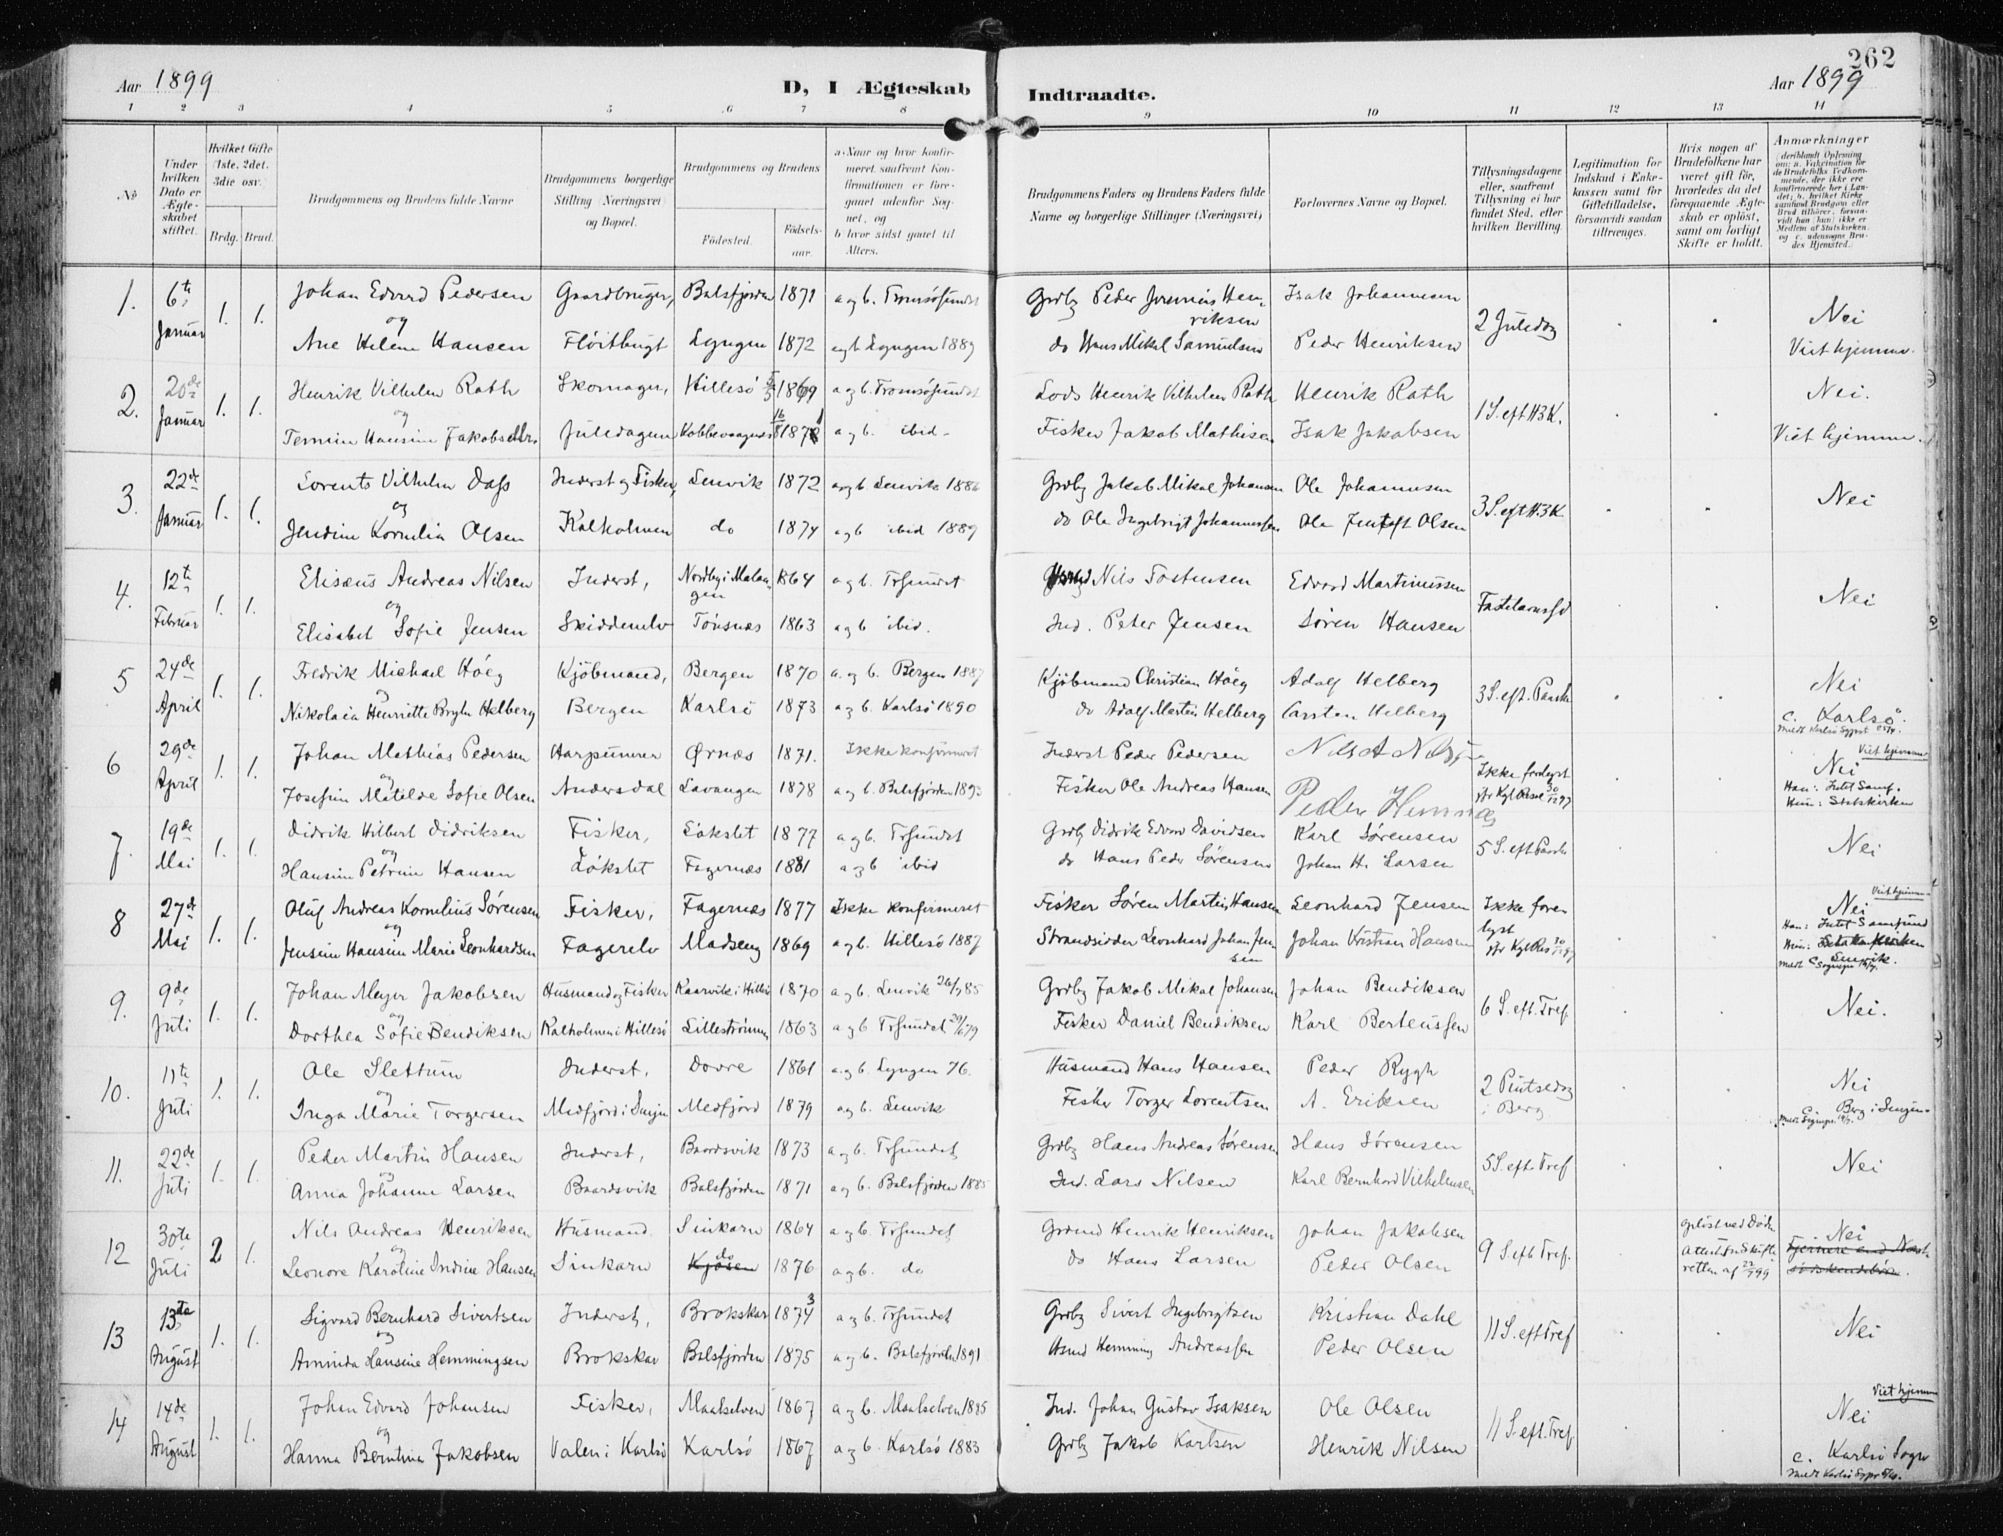 262
Aar 1899
D, I Ægteskab Indtraadte.
Aar 1899
1 2 3 4 5 6 7 8 9 10 11 12 13 14
No
Under hvilken Dato er Ægteskabet stiftet.
Hvilket Gifte 1ste, 2det, 3die osv.
Brdg. Brud.
Brudgommens og Brudens fulde Navne
Brudgommens borgerlige Stilling (Næringsvei) og Bopæl.
Brudgommens og Brudens
Fødested.
Fødselsaar.
a: Naar og hvor konfirmeret saafremt Konfirmationen er foregaaet udenfor Sognet, og
b: hvor sidst gaaet til Alters.
Brudgommens Faders og Brudens Faders fulde Navne og borgerlige Stillinger (Næringsvei)
Forlovernes Navne og Bopæl.
Tillysningsdagene eller, saafremt Tillysning ei har fundet Sted, efter hvilken Bevilling.
Legitimation for Indskud i Enkekassen samt for Giftetilladelse, forsaavidt saadan tiltrænges.
Hvis nogen af Brudefolkene har været gift før, hvorledes da det foregaaende Ægteskab er opløst, samt om lovligt Skifte er holdt.
Anmærkninger
1. 6te Januar 1. 1. Johan Edvard Pedersen Gaardbruger, Balsfjorden 1871 a og b. Tromsøsundet Grdbg Peder Jeremias Henriksen Isak Johannesen 2 Juledag Nei
og Ane Helene Hansen Fløitbugt Lyngen 1872 a og b Lyngen 1889 do Hans Mikal Samuelsen Peder Henriksen Viet hjemme.
2. 20de Januar 1. 1. Henrik Vilhelm Rath Skomager, Hillesö 1869 a og b. Tromsøsundet Lods Henrik Vilhelm Rath Henrik Rath 1 S. eft H3K. Nei.
og Hansine Juledagen Kobbevaagnes 1871 a og b. ibid. Fisker Jakob Mathisen Isak Jakobsen Viet hjemme.
3. 22de Januar 1. 1. Lorents Vilhelm Dass Inderst og Fisker, Lenvik 1872 a og b Lenvik 1886 Grdbg Jakob Mikal Johansen Ole Johannesen 3 S. eft H.3K. Nei
og Jendine Kornelia Olsen Kalholmen do 1874 a og b ibid 1889 do Ole Ingebrigt Johannessen Ole Olsen
4. 12te Februar 1. 1. Elisæus Andreas Nilsen Inderst, Nordby i Malangen 1864 a og b. Trsundet Nils Tostensen Edvard Martinussen Fastelavnsd Nei
og Elisabet Sofie Jensen Skiddenelv Tønsnæs 1863 a og b ibid. Ind. Peter Jensen Søren Hansen
5 24de April 1. 1. Fredrik Michael Höeg Kjöbmand, Bergen 1870 a. og b. Bergen 1887 Kjöbmand Christian Höeg Adolf Helberg 3 S. eft. Paask Nei
og Nikolaia Henriette Helberg Bergen Karlsö 1873 a og b. Karlsö 1890 do Adolf Martin Helberg Carsten Helberg c. Karlsö.
6 29de April 1. 1. Johan Mathias Pedersen Harpunerer Ørnæs 1871. Ikke konfirmeret Inderst Peder Pedersen Ikke forelyst Nei Viet hjemme
og Josefine Matilde Sofie Olsen Andersdal Lavangen 1878 a og b. Balsfjorden 1893 Fisker Ole Andreas Hansen Peder jfr Kgl Resol 30/12 97 Han: Intet Samf. Hun: Statskirken
7. 19de Mai 1. 1. Didrik Hilbert Didriksen Fisker, Lökslet 1877 a og b. Trsundet Grdbg Didrik Edvar Davidsen Karl Sørensen 5 S. eft Paask Nei
og Hansine Petrine Hansen Lökslet Fagernæs 1881 a og b ibid do Hans Peder Sørensen Johan H. Larsen
8 27de Mai 1. 1. Oluf Andreas Kornelius Sørensen Fisker, Fagernæs 1877 Ikke konfirmeret Fisker Søren Martin Hansen Leonhard Jensen Ikke forelyst Nei Viet hjemme
og Jensine Hansine Marie Leonhardsen Fagerelv Madseng 1869 a og b. Hillesö 1887 Strandsidder Leonhard Johan Jensen Johan Kristian Hansen jfr Kgl Res 30/12 97 Han: Intet Samfund Hun: Statskirken c Lenvik.
9. 9de Juli 1. 1. Johan Meyer Jakobsen Husmand og Fisker Kaarvik i Hillesö 1870 a og b. Lenvik 26/7 85 Grdbg Jakob Mikal Johansen Johan Bendiksen 6 S. eft. Tref Nei.
og Dorthea Sofie Bendiksen Kalholmen i Hillesö Lillestrømmen 1863 a og b Trsundet 29/6 79 Fisker Daniel Bendiksen Karl Berteussen
10. 11te Juli 1. 1. Ole Slettum Inderst, Dovre 1861 a og b. Lyngen 76. Husmand Hans Hansen Peder Rygh 2 Pintsedag i Berg Nei
og Inga Marie Torgersen Medfjord i Senjen Medfjord 1879 a og b. Lenvik Fisker Torger Lorentsen A. Eriksen c. Berg i Senjen
11. 22de Juli 1. 1. Peder Martin Hansen Inderst, Baardsvik 1873 a og b. Trsundet Grdbg Hans Andreas Sørensen Hans Sørensen 5 S. eft. Tref Nei
og Anna Johanne Larsen Baardsvik Balsfjorden 1871 a og b. Balsfjorden 1885 Ind. Lars Nilsen Karl Bernhard Vilhelmsen
12 30te Juli 2 1. Nils Andreas Henriksen Husmand Sinkarn 1864 a og b. Trsundet Grdmd Henrik Henriksen Johan Jakobsen 9 S. eft Tref. opløst ved Døden Attest fra Skifteretten af 22/7 99 Nei
og Leonore Karoline Indine Hansen Sinkarn Kjosen do 1876 a og b. do do Hans Larsen Peder Olsen Fjernere end Næstsødskendebörn.
13 13de August 1. 1. Sigvard Bernhard Sivertsen Inderst, Brokskar 1873 a og b. Trsundet Grdbg Sivert Ingebrigtsen Kristian Dahl 11 S. eft Tref Nei
og Aminda Hansine Hemmingsen Brokskar Balsfjorden 1875 a og b. Balsfjorden 1891 Husmd Hemming Andreassen Peder Olsen
14 14de August 1. 1. Johan Edvard Johansen Fisker, Maalselven 1867 a og b. Maalselven 1885 Ind. Johan Gustav Isaksen Ole Olsen 11 S. eft. Tref Nei Viet hjemme
og Hanna Berntine Jakobsen Valen i Karlsö Karlsö 1867 a og b. Karlsö 1883 Grdbg Jakob Karlsen Henrik Nilsen c. Karlsö Sogn